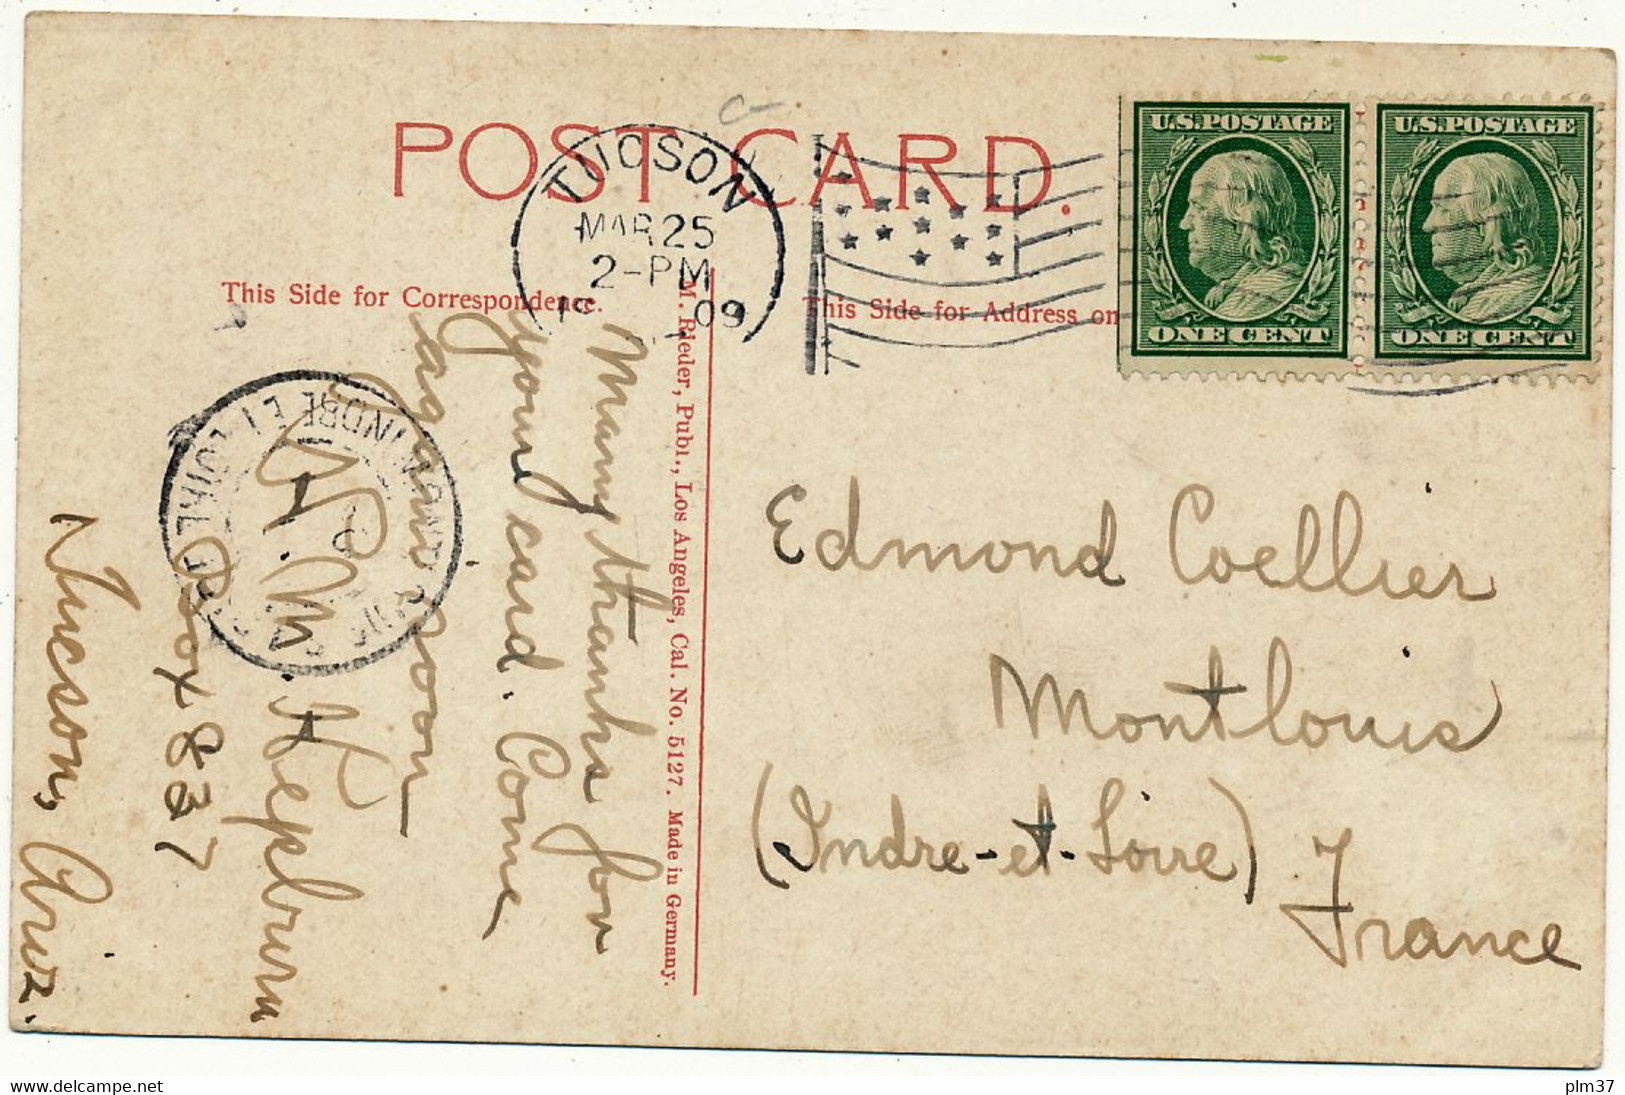 POST CARD.
TUCSON
MAR 25
2-PM
09
This Side for Correspondence.
This Side for Address on
U.S. POSTAGE
ONE CENT
U.S. POSTAGE
ONE CENT
M. Rieder, Publ., Los Angeles, Cal. No. 5127. Made in Germany.
Many thanks for
your card. Come
again soon
H. M. Hepburn
Box 837
Tucson, Ariz.
INDRE ET LOIRE
Edmond Coellier
Montlouis
(Indre-et-Loire)
France
www.delcampe.net
plm37